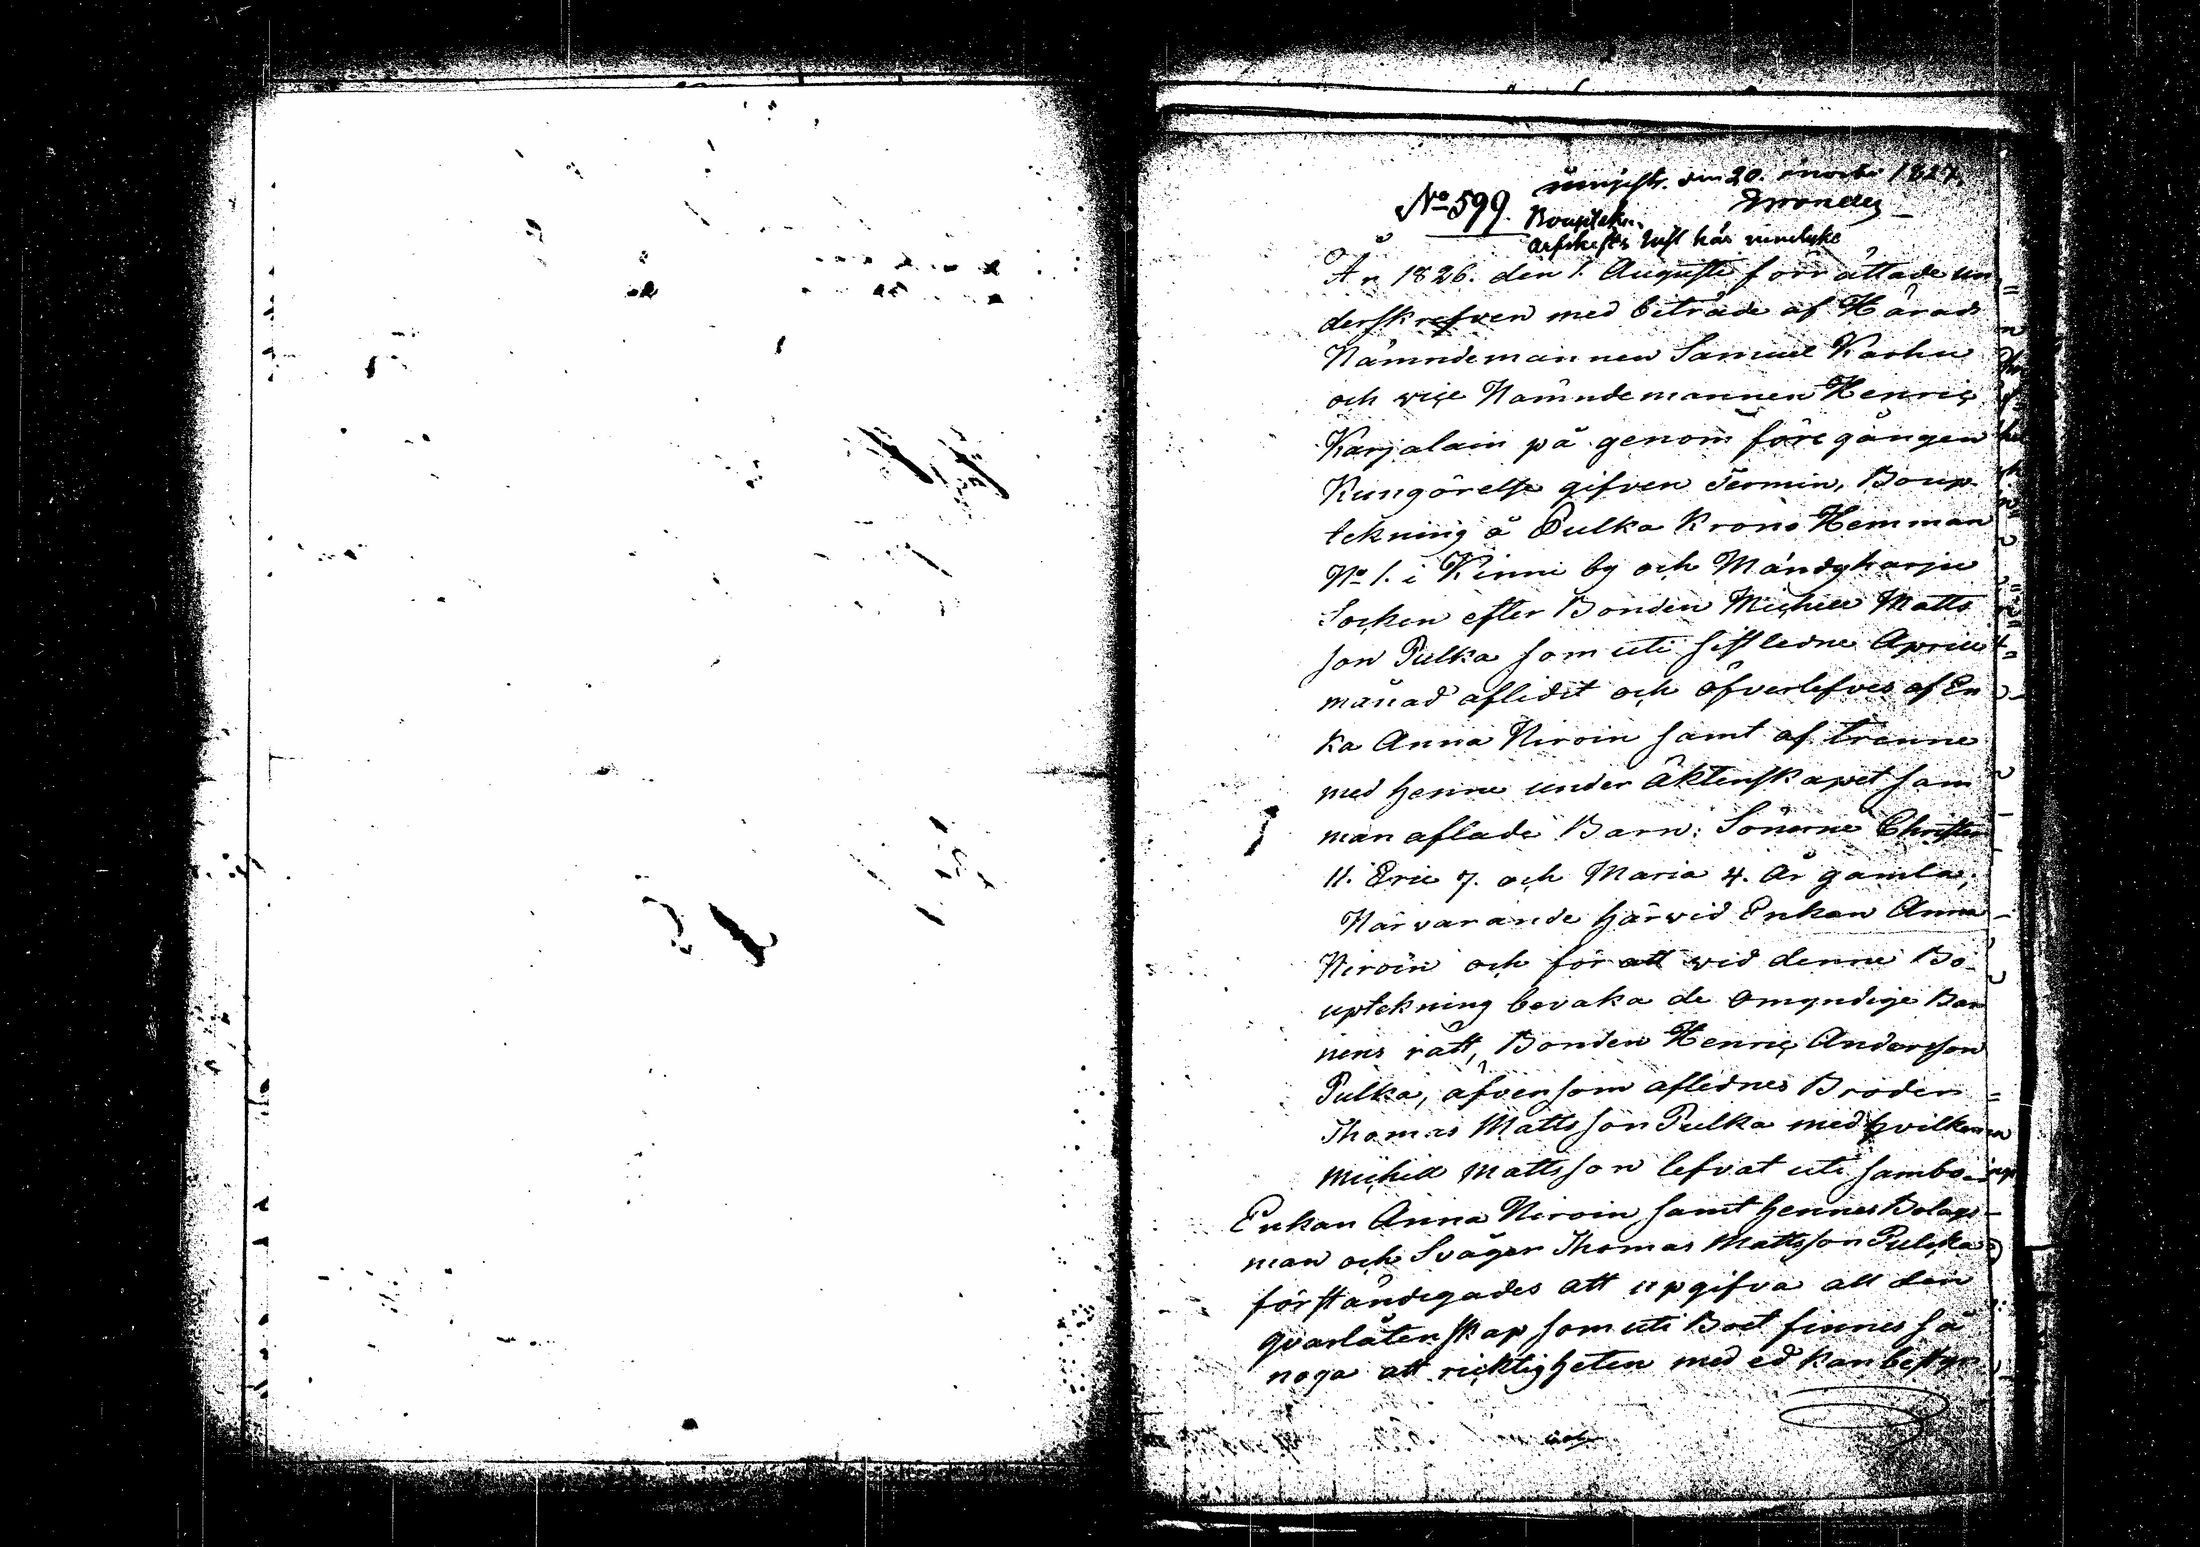 den 20. 1827.
No 599.
År 1826. den 1. Augusti förrättade un=
derskrefven med beträde af Härads
Nämndemannen Samuel Karhu
och viçe Nämndemannen Henriç
Karjalain på genom föregången
Kungörelse gifven Termin, Boup-
tekning å Pulka Krono Hemman
No 1. i Kinni by och Mändyharju
Socken efter Bonden Michell Matts
son Pulka som uti sistledne Aprill
månad aflidit och öfverlefves af En
ka Anna Niroin samt af trenne
med henne under äktenskapet sam
man aflade Barn: Sönerne Christer
11. Eric 7. och Maria 4. år gamla;
Närvarande härvid Enkan Anna
Niroin och för att vid denne Bo-
uptekning bevaka de omyndige Bar
nens rätt, Bonden Henriç Andersson
Pulka, äfvensom aflednes Broder
Thomas Mattsson Pulka med hvilken
Michell Mattsson lefvat uti sambo-
Enkan Anna Niroin samt hennes Bolags-
man och Svåger Thomas Mattsson Pulka
förständigades att upgifva all den
qvarlåtenskap som uti Boet finnes så
noga att ricktigheten med ed kan bestyr